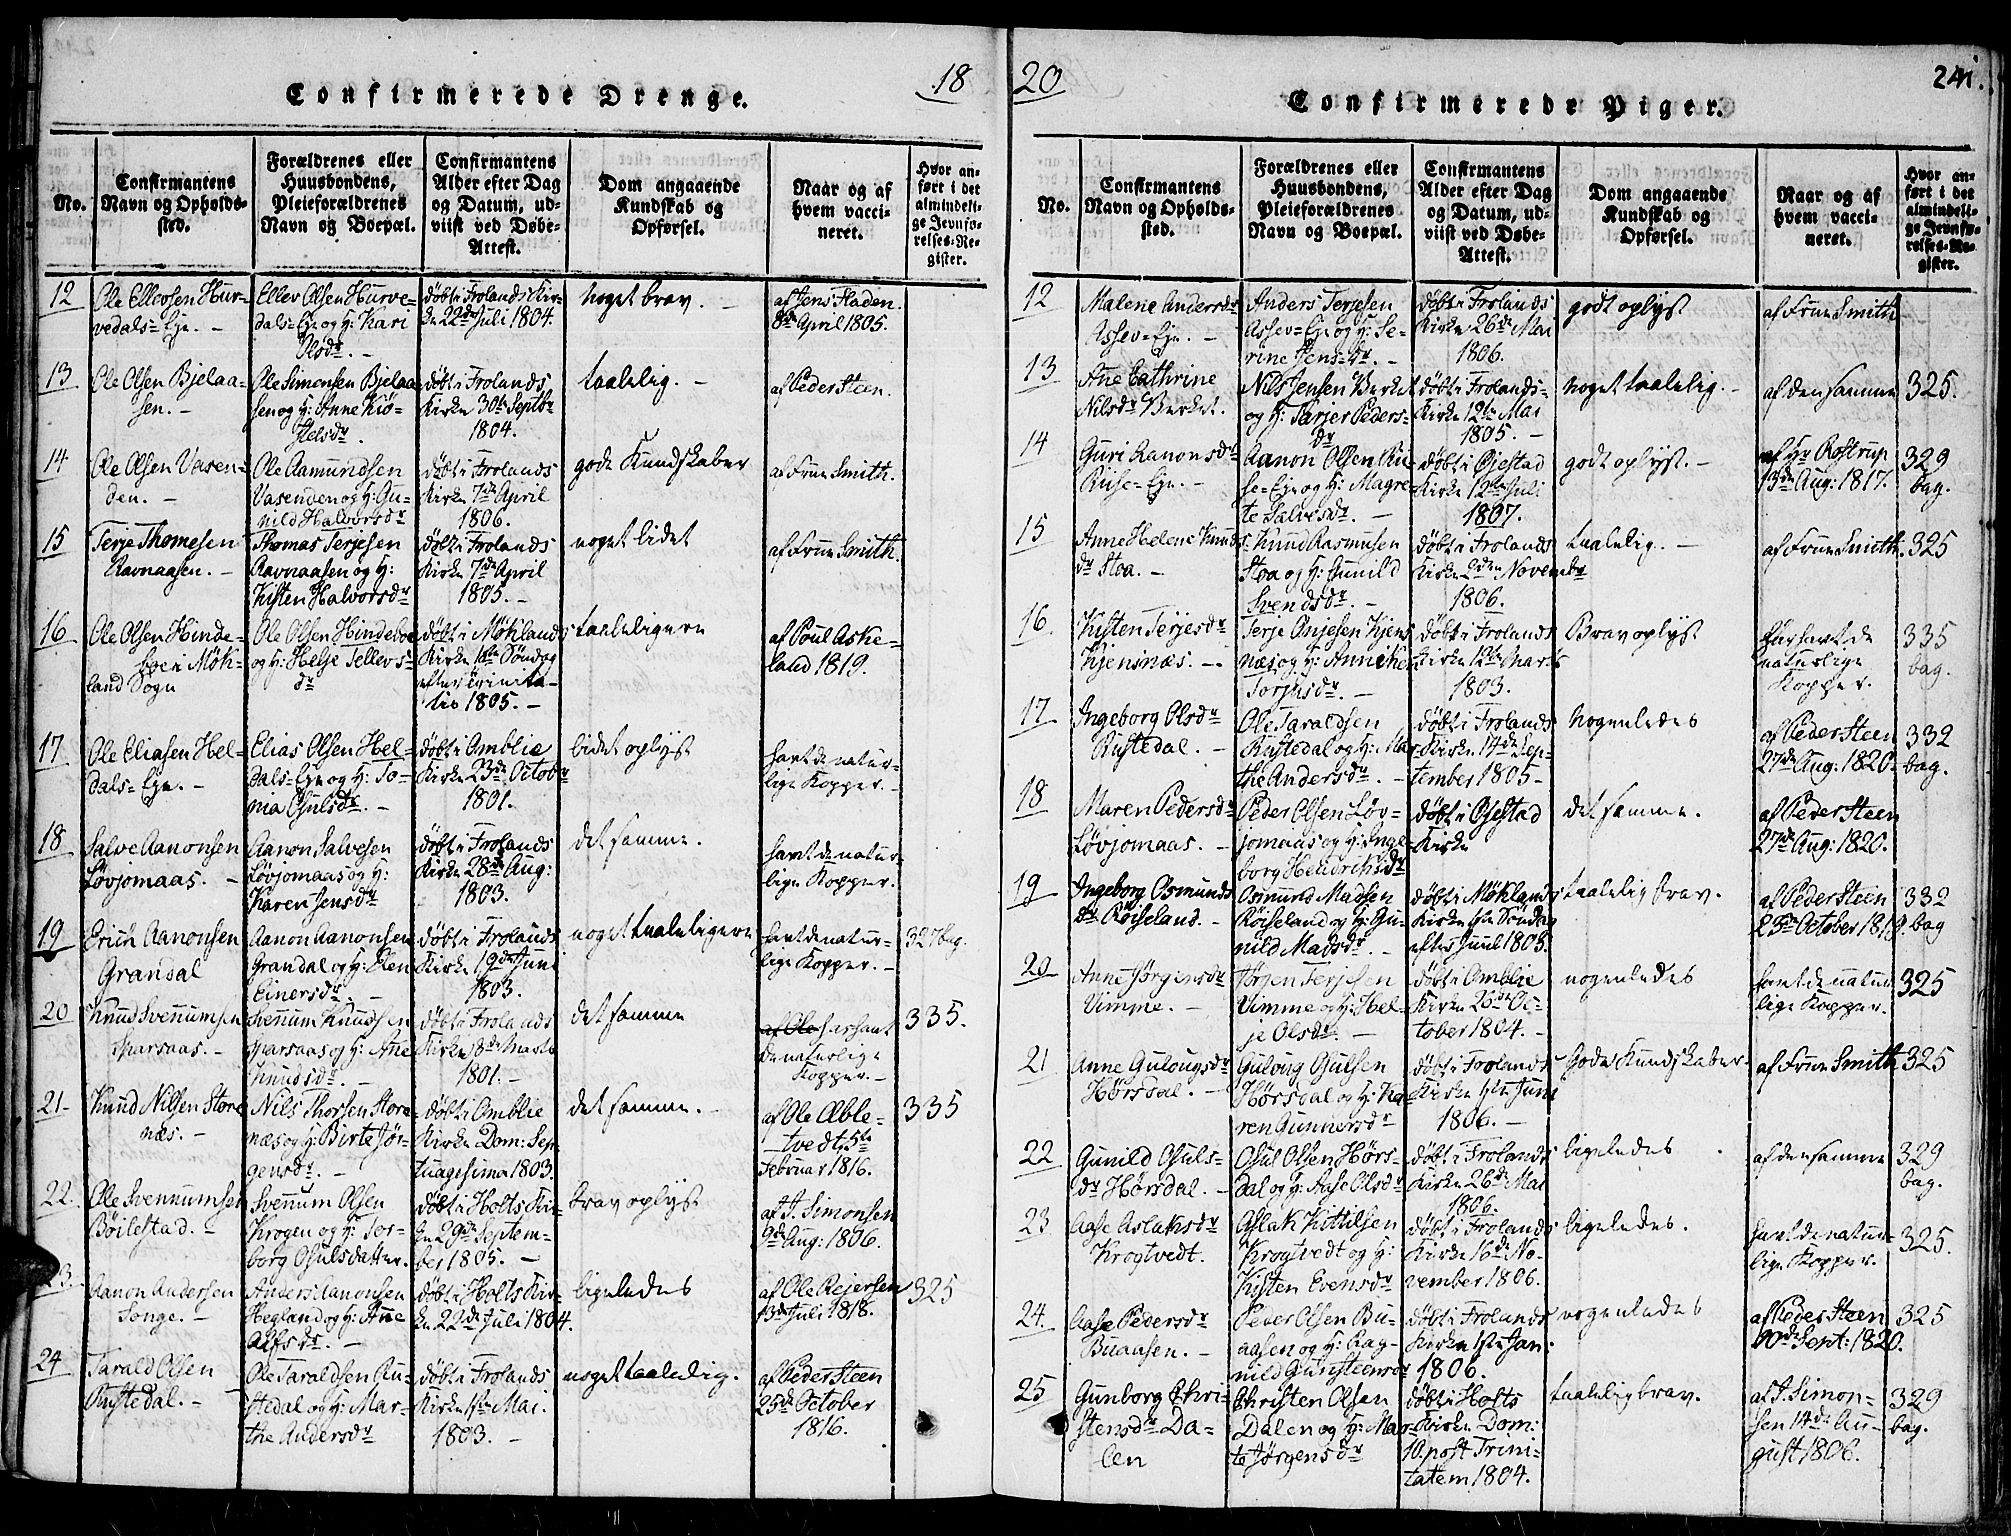 18
Confirmerede Drenge.
No.
Confirmantens
Navn og Opholds-
sted.
Forældrenes eller
Huusbondens,
Pleieforældrenes
Navn og Boepæl.
Confirmantens
Alder efter Dag
og Datum, ud-
viist ved Døbe-
Attest.
Dom angaaende
Kundskab og
Opførsel.
Naar og af
hvem vacci-
neret.
Hvor an-
ført i det
almindeli-
ge Jevnfø-
relses-Re-
gister.
12
Ole Ellevsen Hur-
vedals-Eje. -
Ellev Olsen Hurve-
dals-Eje og H: Kari
Olsdr. -
døbt i Frolands Kir-
ke 22de Juli 1804.
noget brav. -
af Jens Fladen.
8de April 1805.
13
Ole Olsen Bjelaa-
sen. -
Ole Simonsen Bjelaa-
sen og H: Anne Kiø-
stelsdr.
døbt i Frolands
Kirke 30te Septbr
1804.
taalelig. -
af Peder Steen.
14
Ole Olsen Vasen-
den. -
Ole Aamundsen
Vasenden og H: Gu-
nild Halvorsdr
døbt i Frolands
Kirke 7de April
1806.
gode Kundskaber
af Frue Smith.
15
Terje Thomesen
Ravnaasen. -
Thomas Terjesen
Ravnaasen og H:
Kisten Halvorsdr
døbt i Frolands
Kirke 7de April
1805. -
noget lidet
af Frue Smith.
16
Ole Olsen Hinde-
boe i Møk-
land Sogn
Ole Olsen Hindeboe
og H: Helje Tellevs-
dr
døbt i Møklands
Kirke 1ste Søndag
efter Trinita-
tis 1805. -
taaleligere
af Poul Aske-
land 1819.
17
Ole Eliasen Hel-
dals-Eje. -
Elias Olsen Hel-
dals-Eje og H: To-
nia Osulsdr. -
døbt i Amblie
Kirke 23de Octobr
1801.
lidet oplyst
havt de natur-
lige Kopper. -
18
Salve Aanonsen
Løvjomaas. -
Aanon Salvesen
Løvjomaas og H:
Karen Jensdr
døbt i Frolands
Kirke 28de Aug:
1803.
det samme.
havt de natur-
lige Kopper.
19
Erich Aanonsen
Grandal
Aanon Aanonsen
Grandal og H: Elen
Einersdr. -
døbt i Frolands
Kirke 19de Juni
1803.
noget taaleligere
havt de natur-
lige Kopper. -
327 bag.
20
Knud Svenumsen
Sparsaas. -
Svenum Knudsen
Sparsaas og H: Ane
Knudsdr. -
døbt i Frolands
Kirke 8de Marts
1801. -
det samme
af Ole har havt
de naturlige
Kopper. -
335.
21
Knud Nilsen Store-
næs. -
Nils Thorsen Store-
næs og H: Birte Jør-
gensdr. -
døbt i Amblie
Kirke Dom: Sep-
tuagesima 1803.
det samme. -
af Ole Able-
tvedt, 5te
Februar 1816.
335
22.
Ole Svennumsen
Böilestad. -
Svenum Olsen
Krogen og H: Tor-
borg Osulsdatter.
døbt i Holts Kir-
ke 29de Septem-
ber 1805. -
brav oplyst
af T. Simonsen
9de Aug: 1806.
23.
Aanon Andersen
Songe. -
Anders Aanonsen
Hegland og H: Ane
Alfsdr. -
døbt i Holts Kir-
ke 22de Juli 1804.
ligeledes
af Ole Rejersen
13de Juli 1818.
325
24
Tarald Olsen
Rustedal. -
Ole Taraldsen Ru-
stedal og H: Mar-
the Andersdr
døbt i Frolands
Kirke 1ste Mai
1803. -
noget taalelig.
af Peder Steen
25de October
1816.
20
241.
Confirmerede Piger.
No.
Confirmantens
Navn og Opholds-
sted.
Forældrenes eller
Huusbondens,
Pleieforældrenes
Navn og Boepæl.
Confirmantens
Alder efter Dag
og Datum, ud-
viist ved Døbe-
Attest.
Dom angaaende
Kundskab og
Opførsel.
Naar og af
hvem vacci-
neret.
Hvor an-
ført i det
almindeli-
ge Jevnfø-
relses-Re-
gister.
12
Malene Andersdr
Assev-Eje. -
Anders Terjesen
Assev-Eje og H: Se-
rine Jens-dr. -
døbt i Frolands
Kirke 26de Mai
1806.
godt oplyst
af Frue Smith
13
Ane Cathrine
Nilsdr Berket.
Nils Jensen Berket
og H: Tarjer Peders-
dr
døbt i Frolands-
Kirke 12te Mai
1805. -
noget taalelig. -
af den samme
325.
14
Guri Aanonsdr
Riise-Eje. -
Aanon Olsen Rii-
se-Eje og H: Magre-
te Salvesdr. -
døbt i Øjestad
Kirke 12te Juli
1807.
godt oplyst. -
af Hr Rostrup
13de Aug: 1817.
329
bag.
15
Anne Helene Knuds-
dr Stoa. -
Knud Rasmusen
Stoa og H: Gunild
Svendsdr. -
døbt i Frolands
Kirke 2den Novembr
1806.
taalelig. -
af Frue Smith.
325
16
Kisten Terjesdr
Kjensnæs. -
Terje Onjesen Kjens
næs og H: Anniken
Torjusdr. -
døbt i Frolands
Kirke 12te Marts
1803.
Brav oplyst
har havt de
naturlige
Kopper.
335
bag.
17
Ingeborg Olsdr
Rustedal. -
Ole Taraldsen
Rustedal og H: Mar-
the Andersdr. -
døbt i Frolands
Kirke 14de Sep-
tember 1805 -
nogenledes
af Peder Steen
27de Aug: 1820.
332
bag.
18
Maren Pedersdr
Løvjomaas. -
Peder Olsen Løv-
jomaas og H: Inge-
borg Hendriksdr
døbt i Øjestad
Kirke
det samme.
af Peder Steen
27de Aug: 1820.
19
Ingeborg Osmunds
dr Röiseland. -
Osmund Madsen
Röiseland og H: Gu-
nild Madsdr. -
døbt i Møklands
Kirke 1ste Søndag
efter Juul 1805.
taalelig brav.
af Peder Steen
25de October 1819.
332
bag
20
Anne Jørgensdr
Vimme. -
Jørgen Terjesen
Vimme og H: Hel-
je Olsdr. -
døbt i Amblie
Kirke 26de Oc-
tober 1804. -
nogenledes
havt de natur
lige Kopper.
325
21
Anne Gulougsdr
Hørsdal. -
Guloug Osulsen
Hørsdal og H: Ka-
ren Gunnersdr
døbt i Frolands
Kirke 1ste Juni
1806. -
Gode Kundskaber
af Frue Smith
325
22
Gunild Osuls-
dr Hørsdal. -
Osul Olsen Hørs-
dal og H: Aase Olsdr
døbt i Frolands
Kirke 26de Mai
1806.
ligeledes
af den samme
329
bag.
23
Aase Aslaksdr
Krogtvedt.
Aslak Kittilsen
Krogtvedt og H:
Kisten Evensdr
døbt i Frolands
Kirke 16de No-
vember 1806.
ligeledes.
havt de natur-
lige Kopper.
325.
24.
Aase Pedersdr
Buaasen. -
Peder Olsen Bu-
aasen og H: Rag-
nild Gunsteensdr
døbt i Frolands
Kirke 1ste Jan:
1806.
nogenledes
af Peder Steen
20de Sept: 1820.
325
25
Gunborg Chri-
stensdr Da-
len
Christen Olsen
Dalen og H: Mar-
te Jørgensdr
døbt i Holts
Kirke Dom:
10. post Trini-
tatem 1804.
taalelig brav.
af T. Simon-
sen 14de Au-
gust 1806.
329
bag.